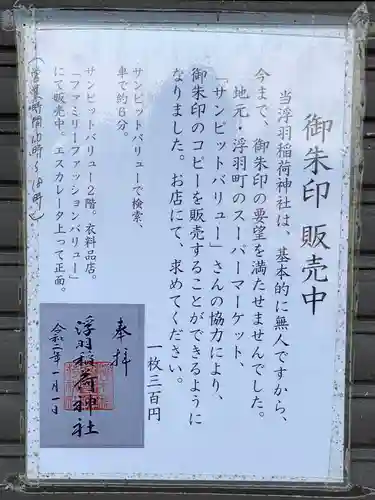 御朱印 販売中
当浮羽稲荷神社は、基本的に無人ですから、
今まで、御朱印の要望を満たせませんでした。
地元・浮羽町のスーパーマーケット、
「サンピットバリュー」さんの協力により、
御朱印のコピーを販売することができるように
なりました。お店にて、求めてください。
一枚三百円
サンピットバリューで検索、
車で約6分。
サンピットバリュー2階。衣料品店。
「ファミリーファッションバリュー」
にて販売中。エスカレータ上って正面。
(営業時間10時~18時)
奉拝
浮羽稲荷神社
令和二年一月一日